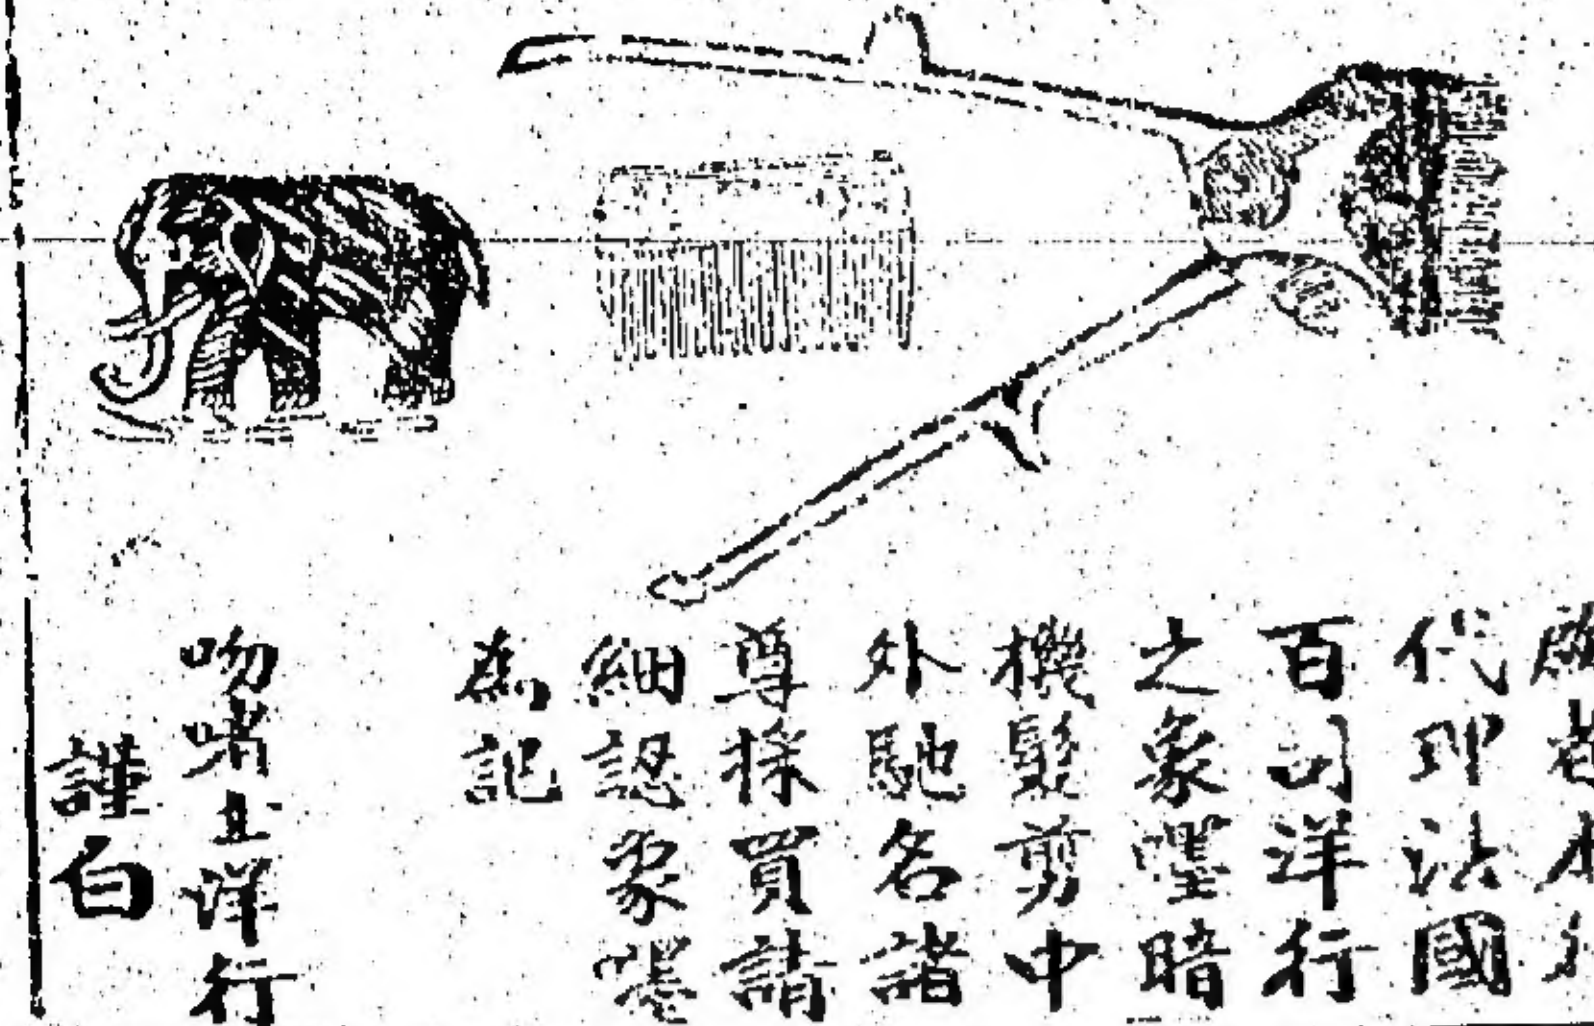 啟者本行
代理法國
百司洋行
之象嘜暗
機髮剪中
外馳名諸
尊採買請
細認象嘜
為記
吻啫士洋行
謹白